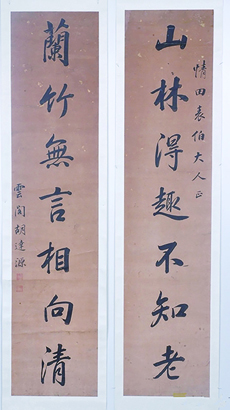 山林得趣不知老
情田表伯大人正
蘭竹無言相向清
雲閣胡達源